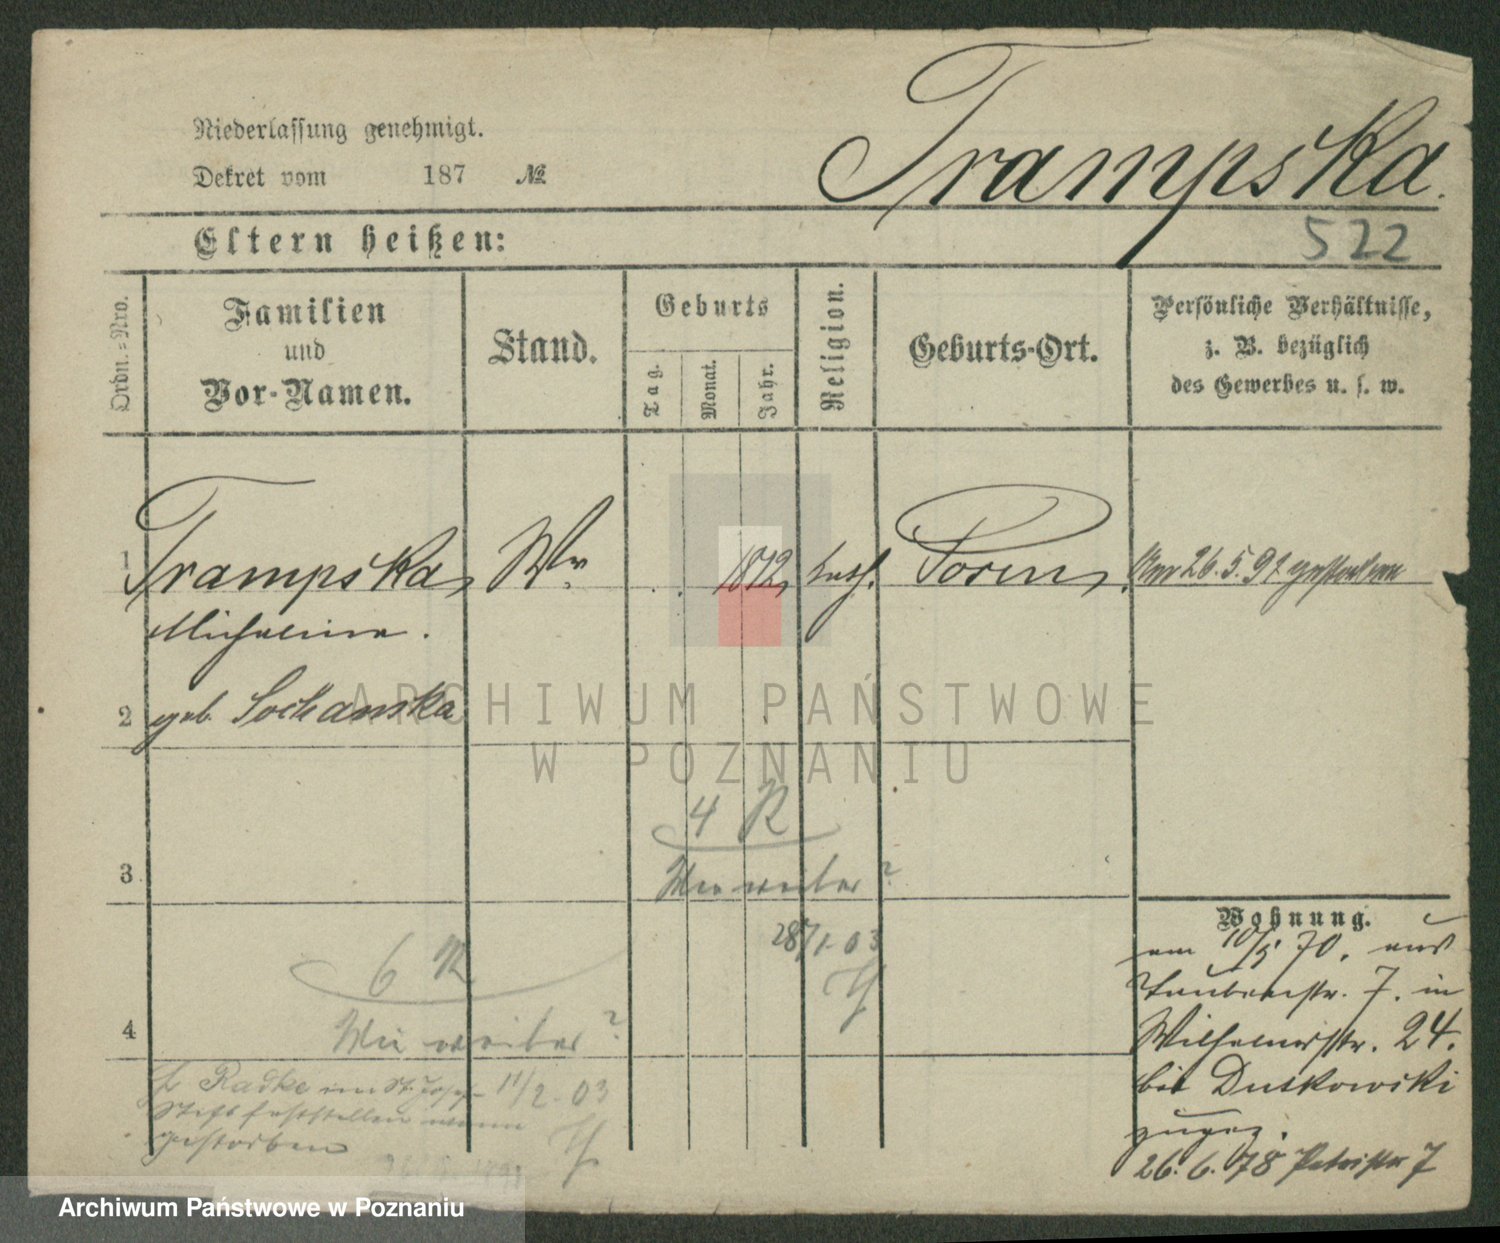 Niederlassung genehmigt.
Dekret vom 187 №
Trampska.
522
Eltern heißen:
Ordn.-Nro.
Familien
und
Vor-Namen.
Stand.
Geburts
Tag.
Monat.
Jahr.
Religion.
Geburts-Ort.
Persönliche Verhältnisse,
z. B. bezüglich
des Gewerbes u. s. w.
1 Trampska, Ww 1812, kath. Posen, Am 26.5.91 gestorben
Michalina.
2 geb. Sochanska
ARCHIWUM PAŃSTWOWE
W POZNANIU
4 R
3
Wie weiter?
Wohnung.
28/1.03
am 10/5 70. aus
6 R
Taubenstr. 7. in
4
Wie weiter?
Wilhelmsstr. 24.
bei Dutkowski
Radke im St. Josef- 11/2.03
Stift feststellen wann
zugez.
gestorben
26.6.78 Petristr 7
Archiwum Państwowe w Poznaniu